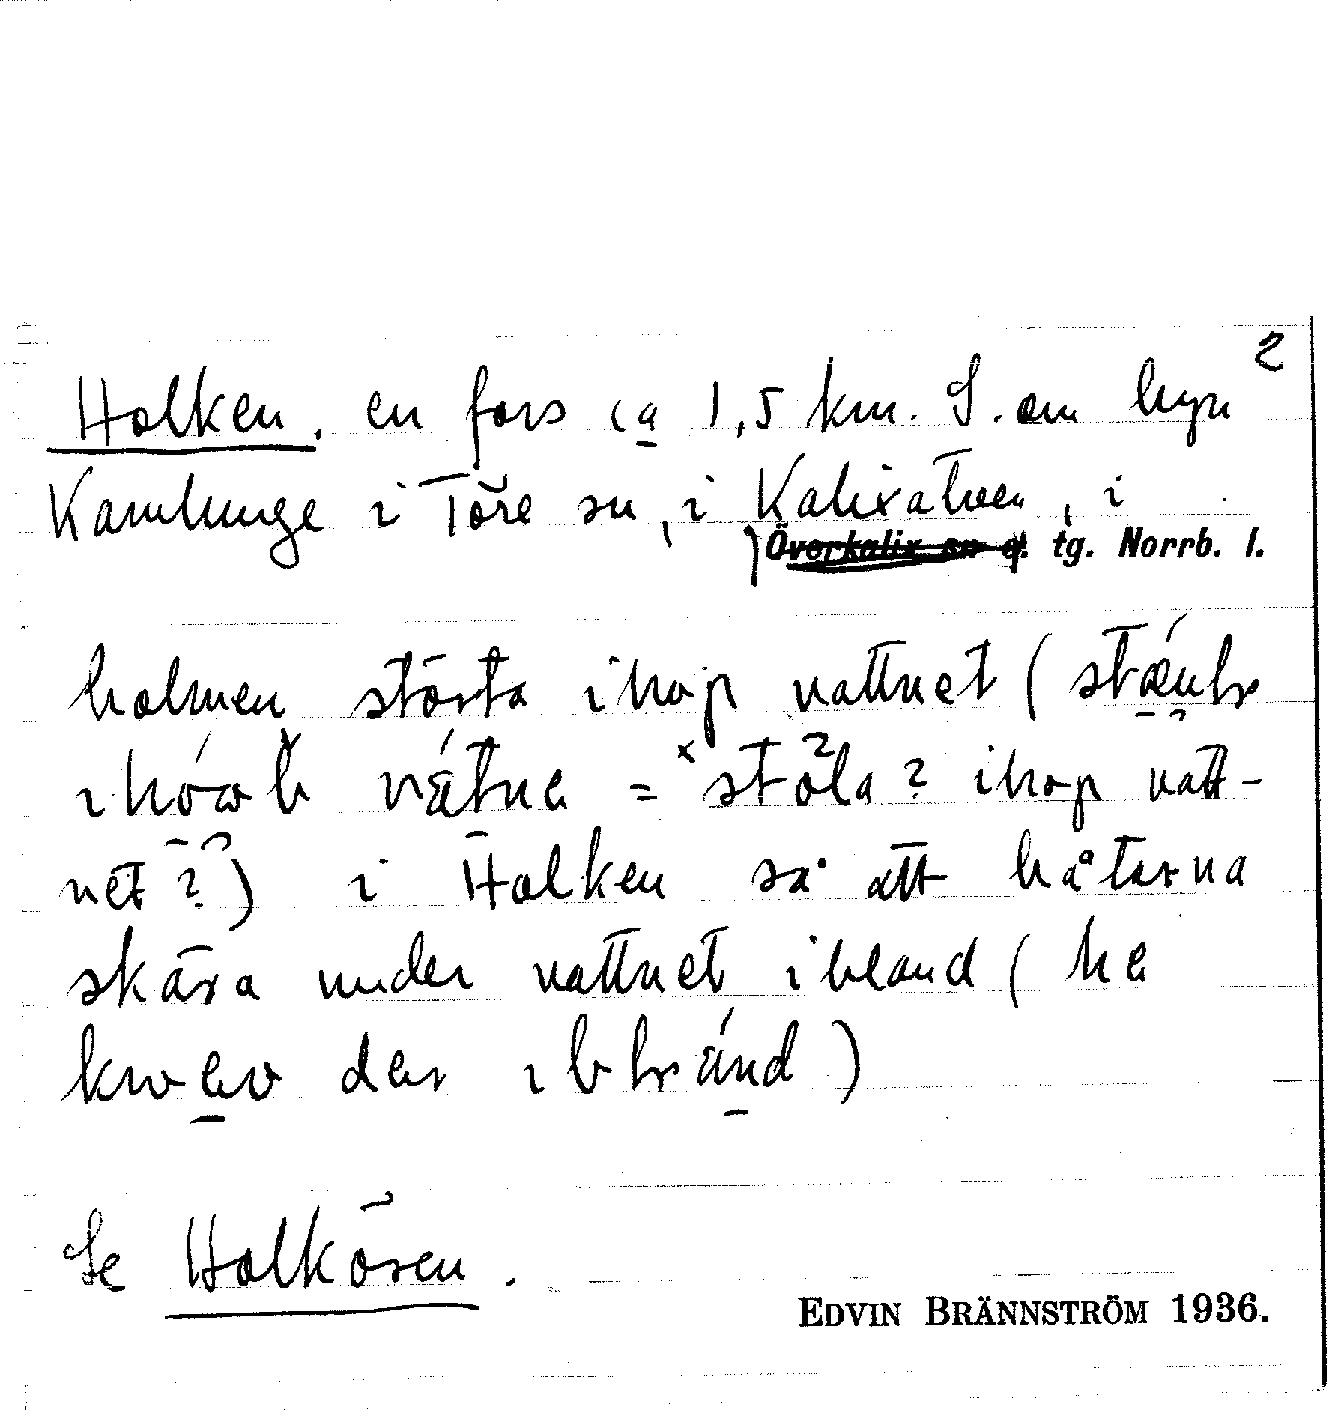 2
Holken, en fors ca 1,5 km. S. om byn
Kamlunge i Töre sn, i Kalixälven, i
Överkalix sn q. tg. Norrb. l.
holmen störta ihop vattnet (
ihówb vátne = ˣstöla? ihop vatt-
net?) i Holken så att båtarna
skära under vattnet ibland ( he
der )
Se Holkören.
EDVIN BRÄNNSTRÖM 1936.